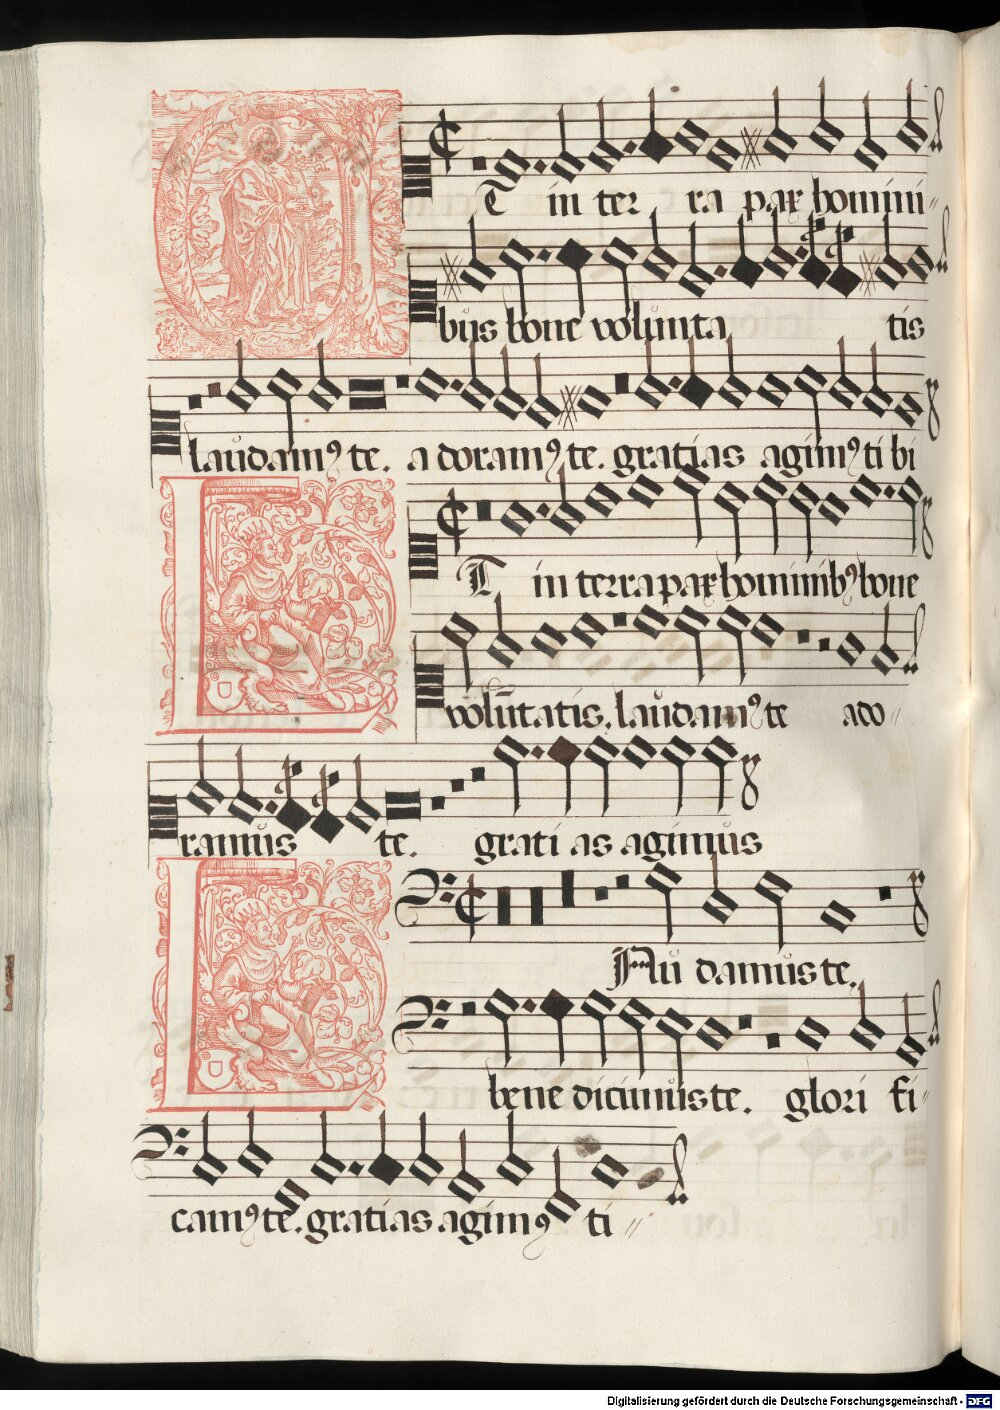 Et in ter ra pax homini⸗
bus bone volunta tis
laudamꝰ te. adoramꝰ te. gratias agimꝰ ti bi
Et in terra pax hominibꝰ bone
volūtatis. laudamꝰ te ado⸗
ramus te. grati as agimus
Lau damus te.
bene dicimus te. glori fi⸗
camꝰ te. gratias agimꝰ ti⸗
Digitalisierung gefördert durch die Deutsche Forschungsgemeinschaft - DFG